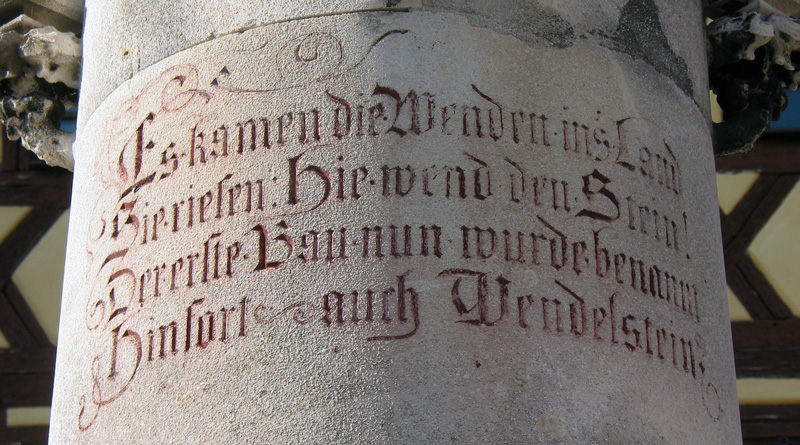 Es·kamen die·Wenden·in's·Land
Sie·riefen: Hie·wend·den·Stein!
Der erste·Bau·nun·wurde·benannt
Hinfort auch Wendelstein.